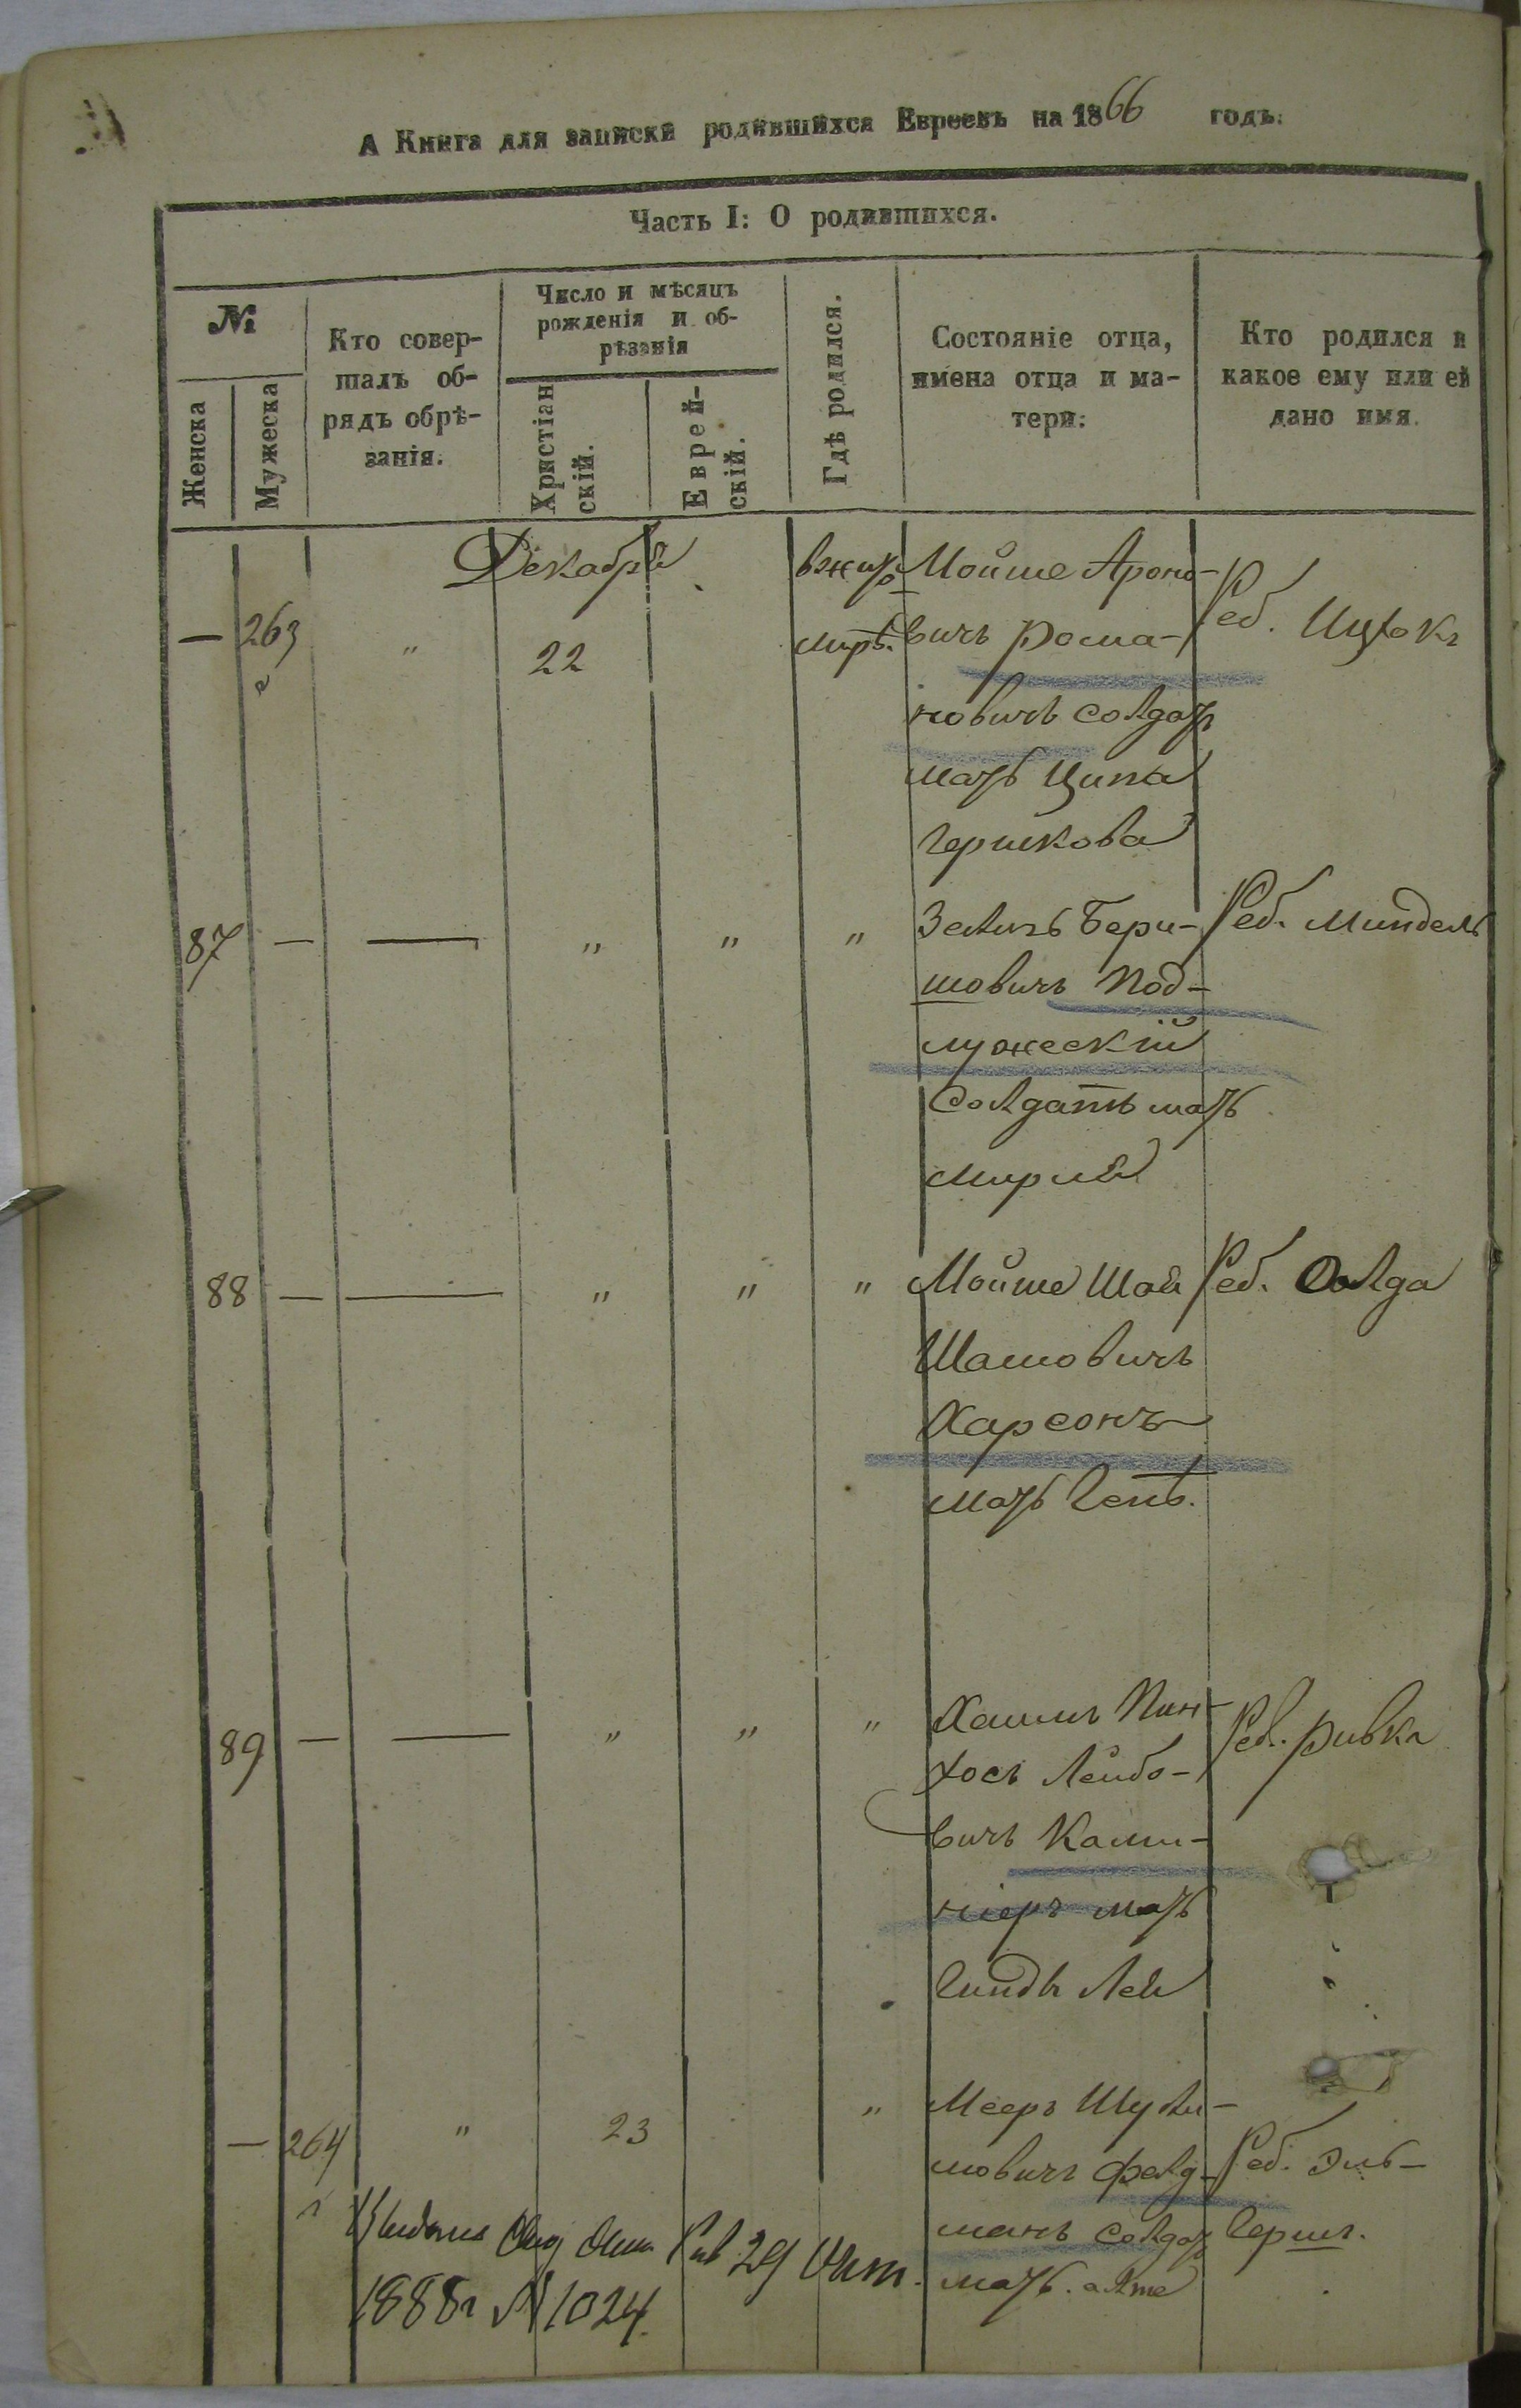 А Книга для записки родившихся Евреевъ на 1866 годъ.
Часть I: О родившихся.
№
Женска
Мужеска
Кто совер-
шалъ об-
рядъ обрѣ-
занія.
Число и мѣсяцъ
рожденія и об-
рѣзанія
Христіан
скій.
Еврей-
скій.
Гдѣ родился.
Состояніе отца,
имена отца и ма-
тери:
Кто родился и
какое ему или ей
дано имя.
Декабря
— 263 " 22
в жито
мирѣ.
Мойше Ароно-
вичъ Рома-
новичъ солдат
мать Ципа
Гершкова
Реб. Ицхокъ
87 — — " " "
Зелигъ Бери-
шовичъ Под-
лужескій
Солдатъ мать
Мирля
Реб. Миндель
88 — — " " "
Мойше Шая
Шамовичъ
Харсонъ
мать Геня.
Реб. Голда
89 — — " " "
Хаимъ Пин-
хосъ Лейбо-
вичъ Ками-
ніеръ мать
Гинда Лея
Реб. Ривка
— 264 " 23 "
Мееръ Шули-
мовичъ Фелд-
манъ солдат
мать Алте
Реб. Эль-
Гершъ.
29
1888г № 1024.